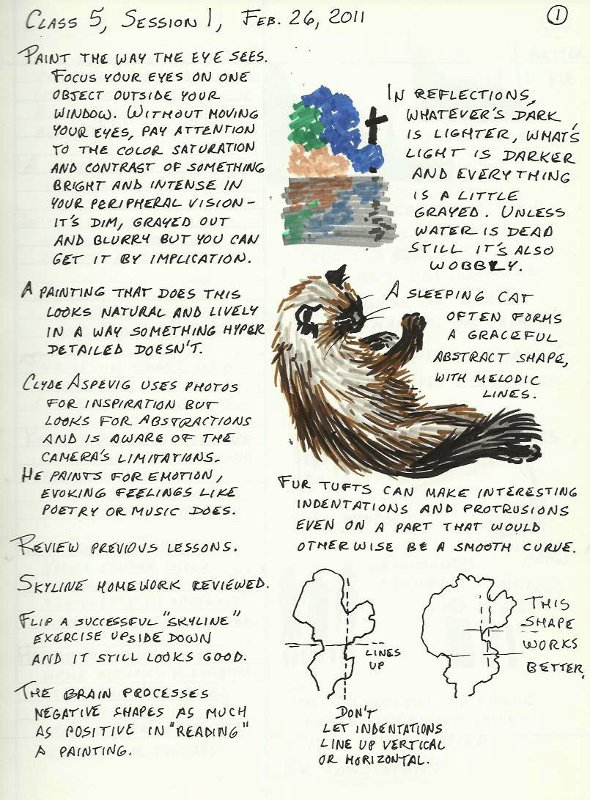 Class 5, Session 1, Feb. 26, 2011
1
Paint the way the eye sees.
Focus your eyes on one
object outside your
window. Without moving
your eyes, pay attention
to the color saturation
and contrast of something
bright and intense in
your peripheral vision–
it's dim, grayed out
and blurry but you can
get it by implication.
A painting that does this
looks natural and lively
in a way something hyper
detailed doesn't.
Clyde Aspevig uses photos
for inspiration but
looks for abstractions
and is aware of the
camera's limitations.
He paints for emotion,
evoking feelings like
poetry or music does.
Review previous lessons.
Skyline homework reviewed.
Flip a successful "skyline"
exercise upside down
and it still looks good.
The brain processes
negative shapes as much
as positive in "reading"
a painting.
In reflections,
whatever's dark
is lighter, what's
light is darker
and everything
is a little
grayed. Unless
water is dead
still it's also
wobbly.
A sleeping cat
often forms
a graceful
abstract shape,
with melodic
lines.
Fur tufts can make interesting
indentations and protrusions
even on a part that would
otherwise be a smooth curve.
Lines
up
Don't
let indentations
line up vertical
or horizontal.
This
shape
works
better.